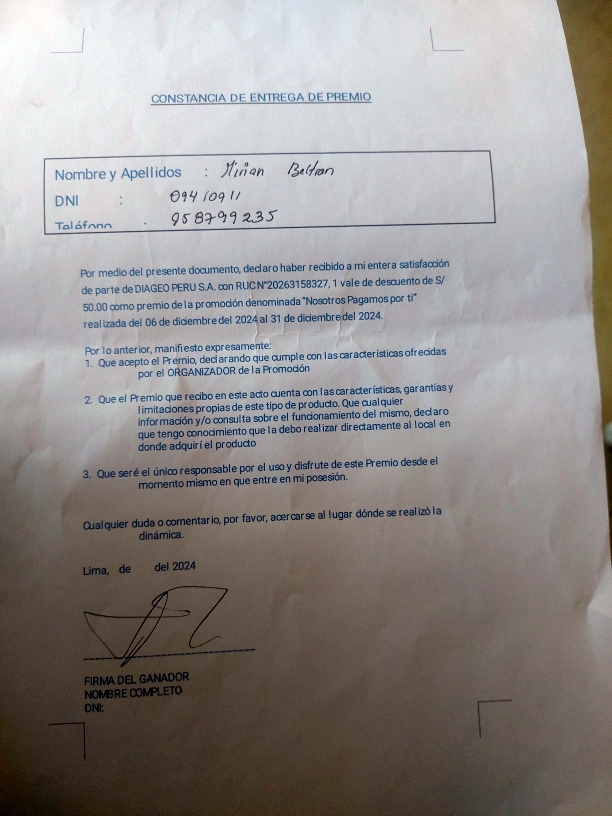 CONSTANCIA DE ENTREGA DE PREMIO
Nombre y Apellidos : Mirian Beltran
DNI : 09410911
Teléfono : 958799235
Por medio del presente documento, declaro haber recibido a mi entera satisfacción
de parte de DIAGEO PERU S.A. con RUC N°20263158327, 1 vale de descuento de S/
50.00 como premio de la promoción denominada "Nosotros Pagamos por ti"
realizada del 06 de diciembre del 2024 al 31 de diciembre del 2024.
Por lo anterior, manifiesto expresamente:
1. Que acepto el Premio, declarando que cumple con las características ofrecidas
por el ORGANIZADOR de la Promoción
2. Que el Premio que recibo en este acto cuenta con las características, garantías y
limitaciones propias de este tipo de producto. Que cualquier
información y/o consulta sobre el funcionamiento del mismo, declaro
que tengo conocimiento que la debo realizar directamente al local en
donde adquirí el producto
3. Que seré el único responsable por el uso y disfrute de este Premio desde el
momento mismo en que entre en mi posesión.
Cualquier duda o comentario, por favor, acercarse al lugar dónde se realizó la
dinámica.
Lima, de del 2024
FIRMA DEL GANADOR
NOMBRE COMPLETO
DNI: